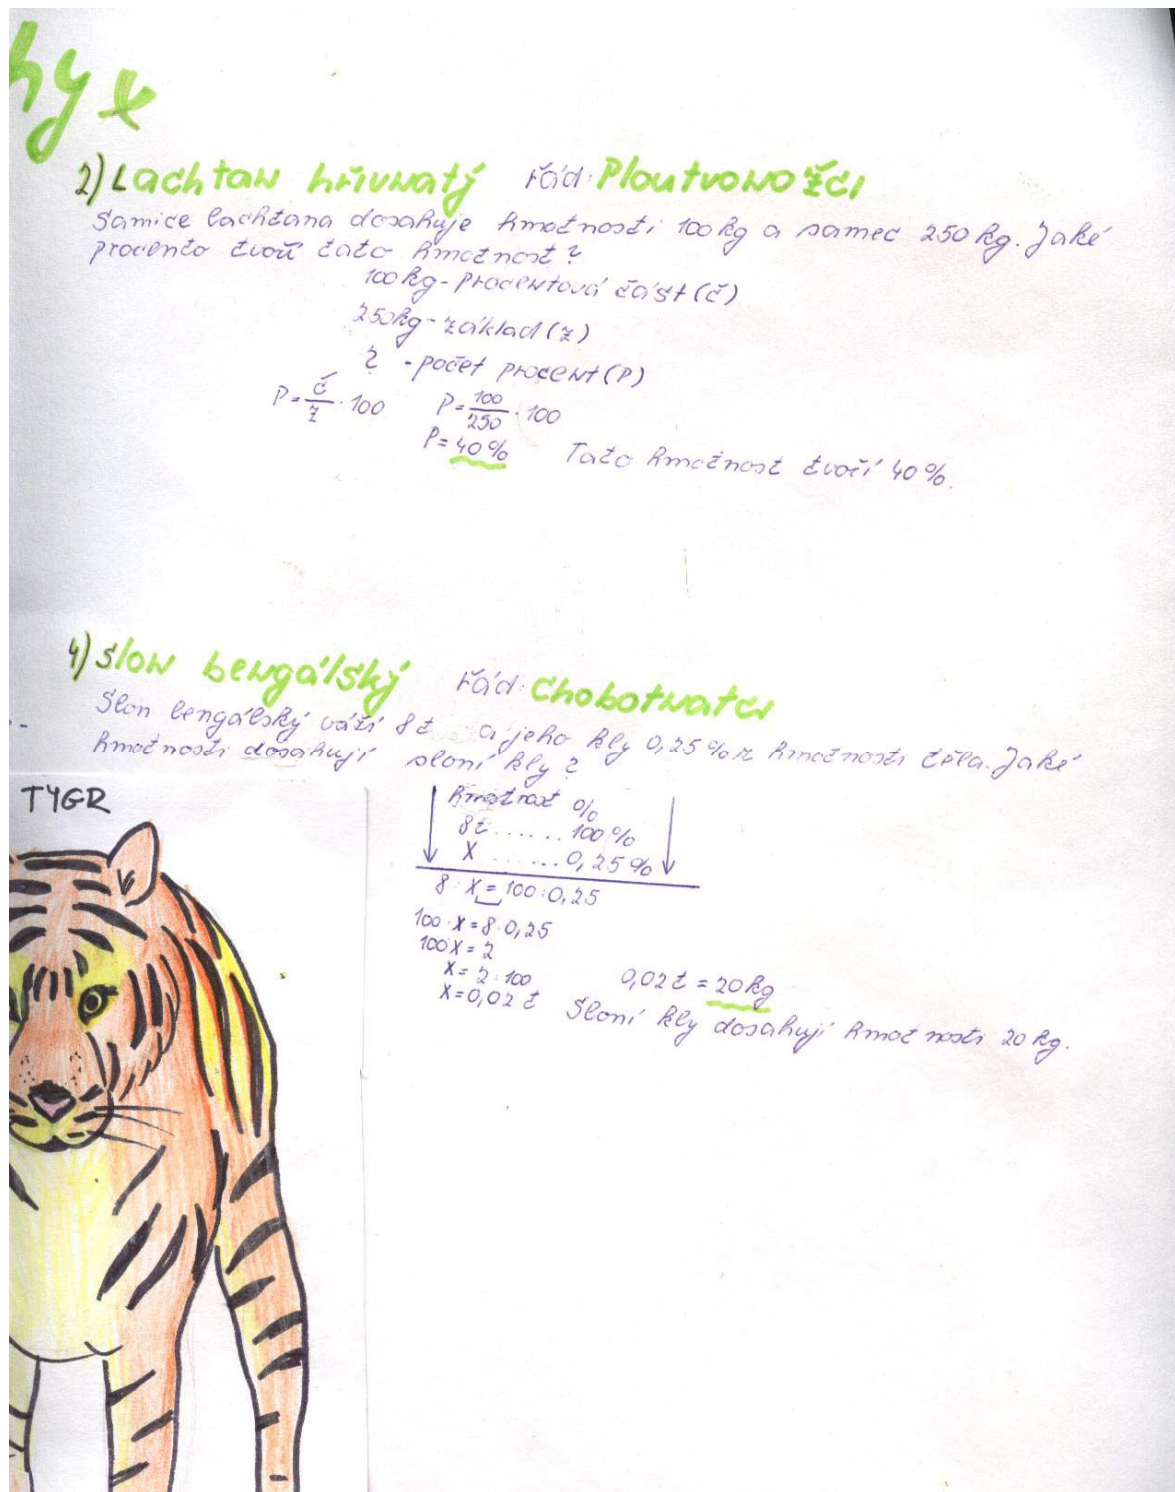 hy x
2) Lachtan hřivnatý řád: Ploutvonožci
Samice lachtana dosahuje hmotnosti 100 kg a samec 250 kg. Jaké
procento tvoří tato hmotnost?
100 kg - procentová část (č)
250 kg - základ (z)
? - počet procent (P)
P = č/z · 100 P = 100/250 · 100
P = 40 % Tato hmotnost tvoří 40 %.
4) Slon bengálský řád: Chobotnatci
Slon bengálský váží 8 t a jeho kly 0,25 % z hmotnosti těla. Jaké
hmotnosti dosahují sloní kly?
TYGR
hmotnost %
8 t ...... 100 %
X ...... 0,25 %
8 : X = 100 : 0,25
100 · X = 8 · 0,25
100 X = 2
X = 2 : 100
X = 0,02 t 0,02 t = 20 kg
Sloní kly dosahují hmotnosti 20 kg.